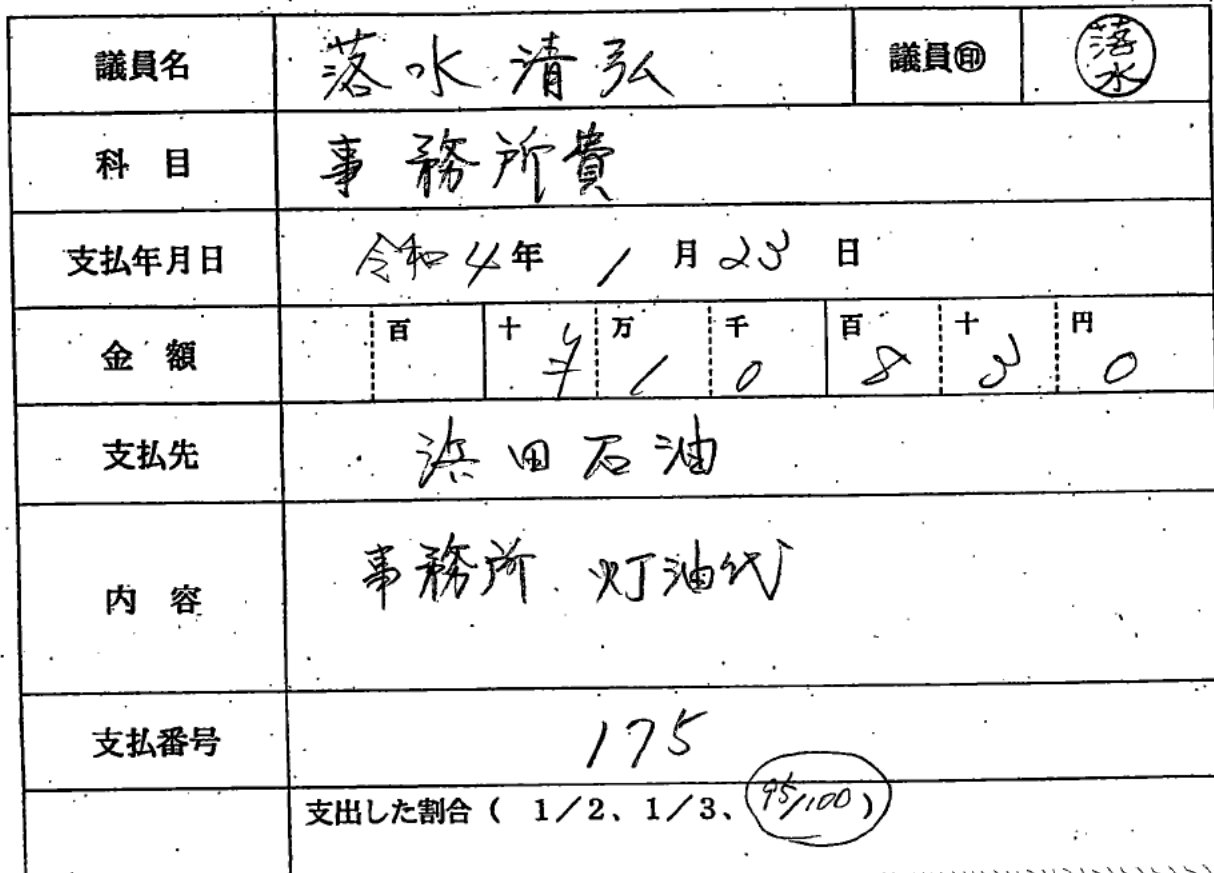 議員名 落水清弘 議員㊞ 落水
科目 事務所費
支払年月日 令和4年1月23日
金額 百 十 ¥ 万 1 千 0 百 8 十 3 円 0
支払先 浜田石油
内容 事務所 灯油代
支払番号 175
支出した割合( 1/2、1/3、95/100 )